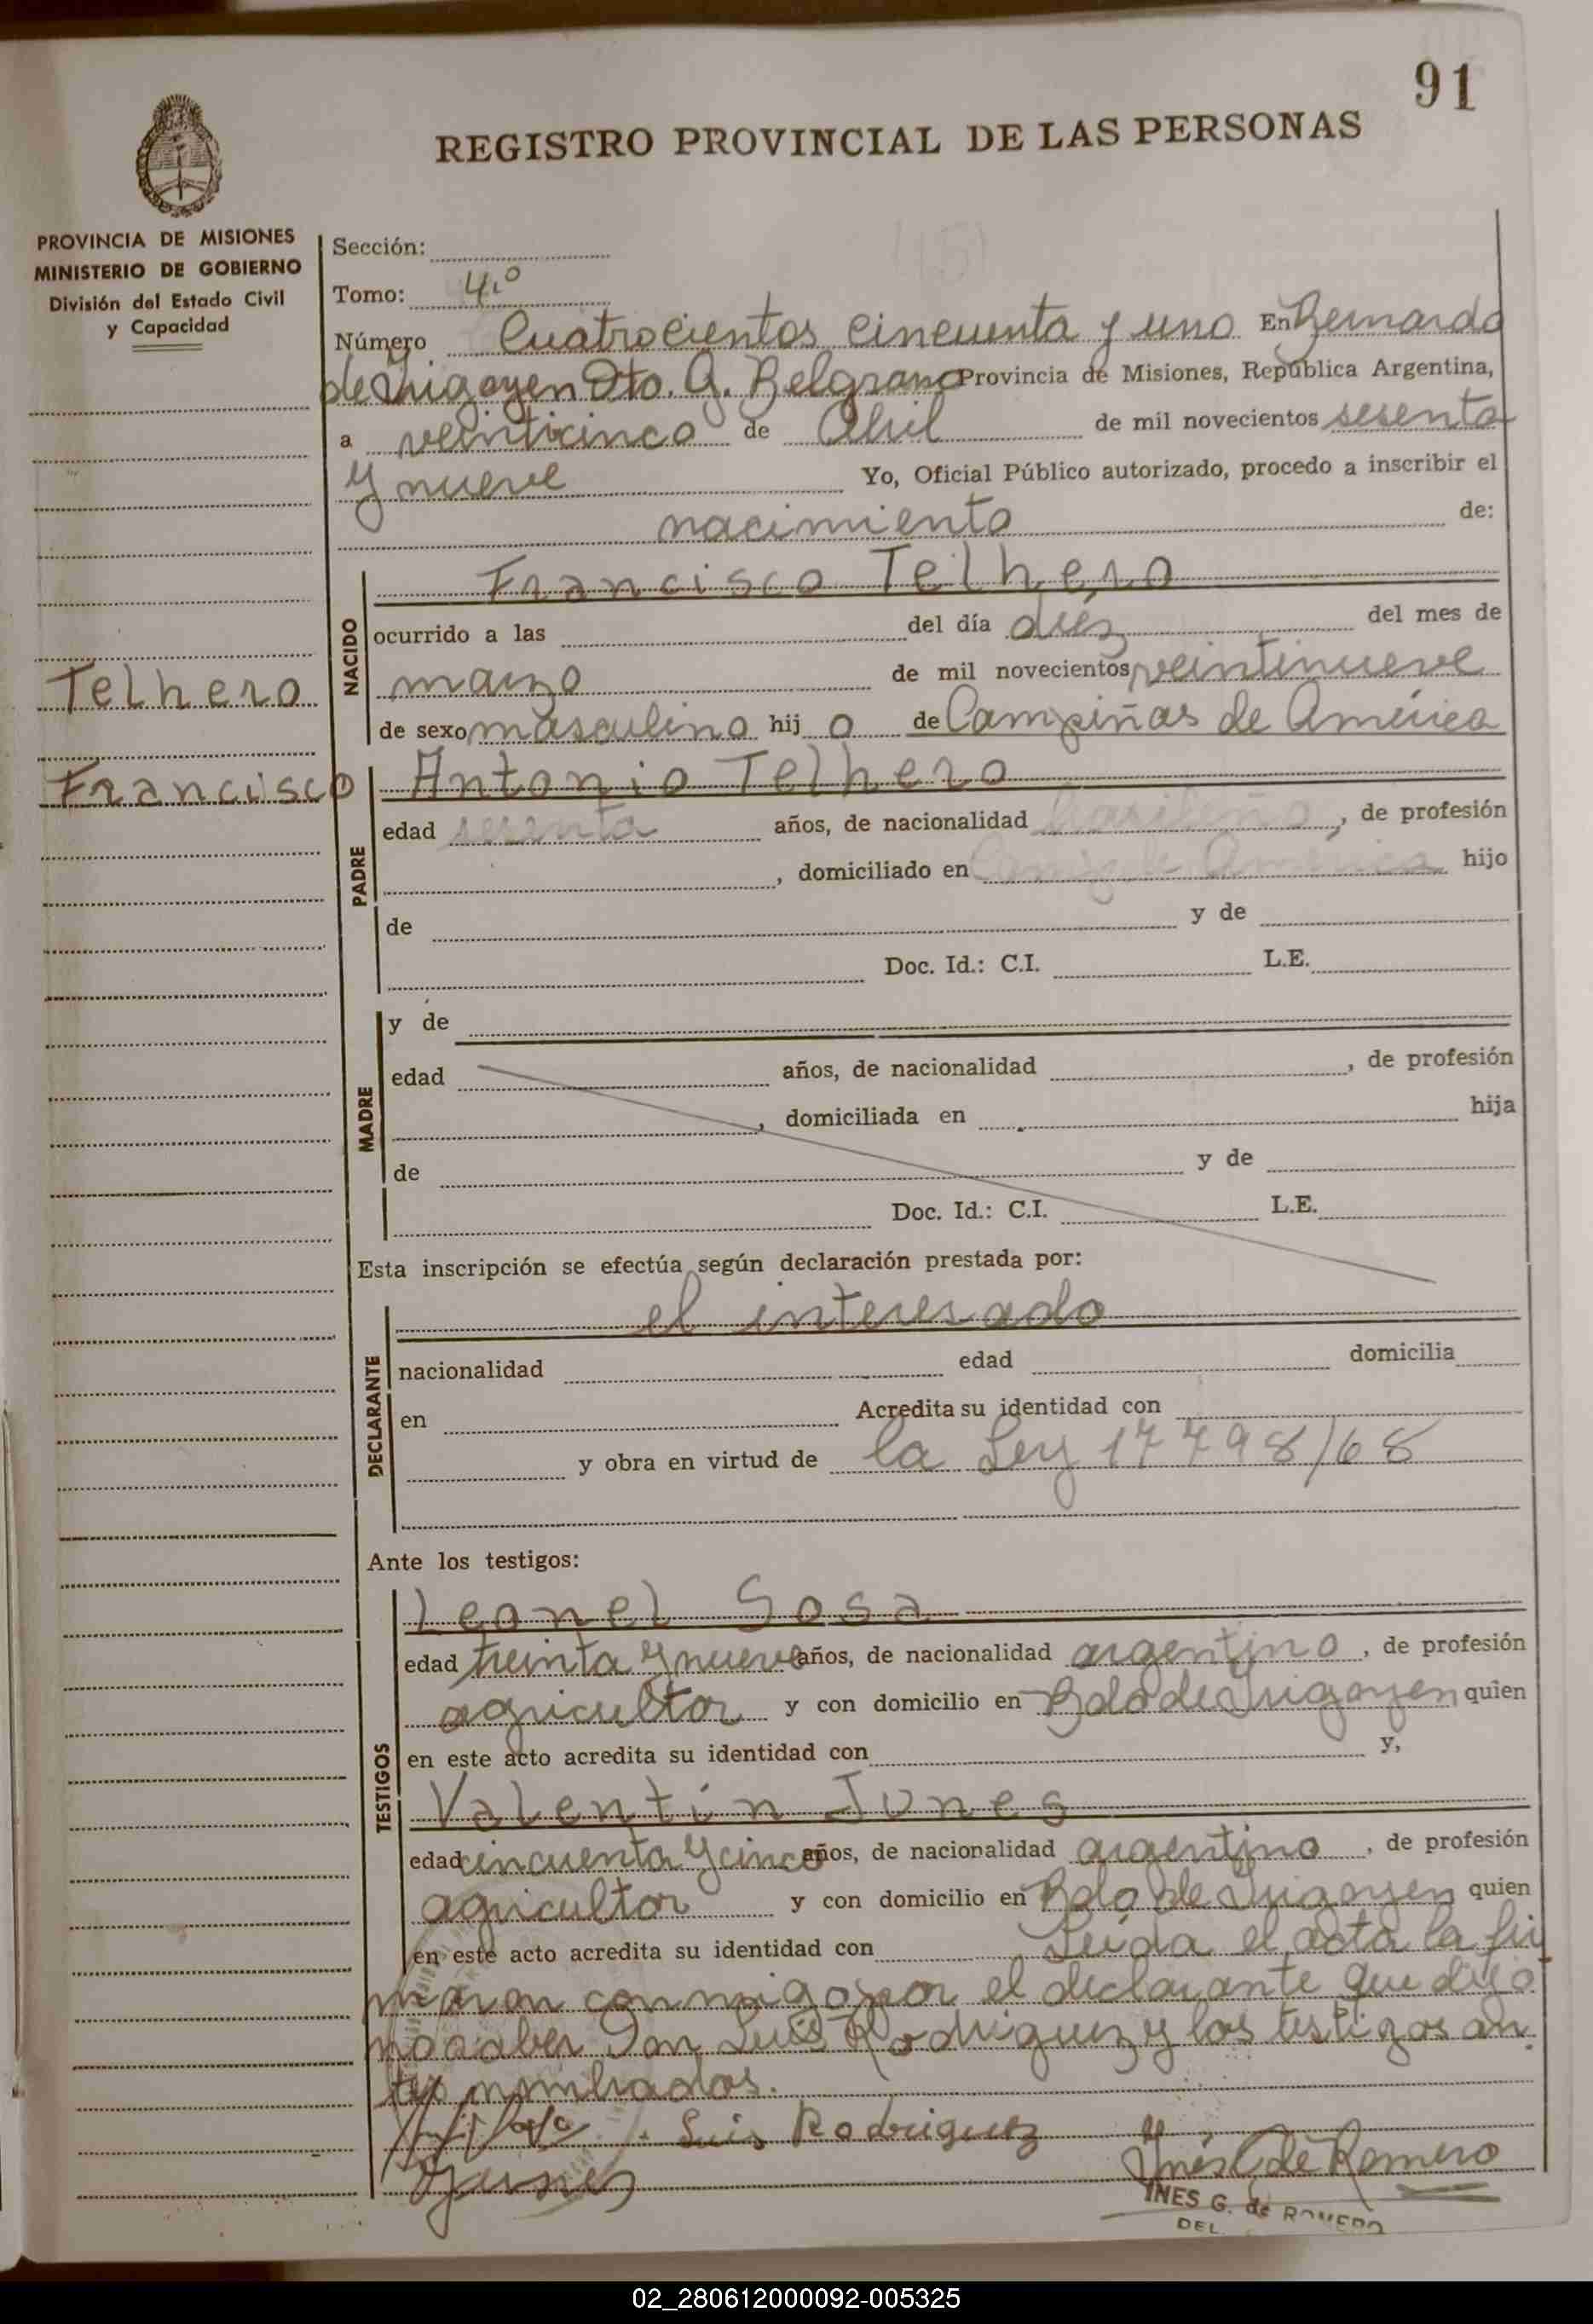 91
REGISTRO PROVINCIAL DE LAS PERSONAS
PROVINCIA DE MISIONES
MINISTERIO DE GOBIERNO
División del Estado Civil
y Capacidad
Sección:
Tomo: 4.º
Número Cuatrocientos cincuenta y uno En Bernardo
de Irigoyen Dto. G. Belgrano Provincia de Misiones, República Argentina,
a veinticinco de Abril de mil novecientos sesenta
y nueve Yo, Oficial Público autorizado, procedo a inscribir el
nacimiento de:
Telhero
Francisco
NACIDO
Francisco Telhero
ocurrido a las del día diez del mes de
marzo de mil novecientos veintinueve
de sexo masculino hij o de Campiñas de América
PADRE
Antonio Telhero
edad sesenta años, de nacionalidad brasileño, de profesión
, domiciliado en América hijo
de y de
Doc. Id.: C.I. L.E.
MADRE
y de
edad años, de nacionalidad , de profesión
, domiciliada en hija
de y de
Doc. Id.: C.I. L.E.
Esta inscripción se efectúa según declaración prestada por:
DECLARANTE
el interesado
nacionalidad edad domicilia
en Acredita su identidad con
y obra en virtud de la Ley 17798/68
Ante los testigos:
TESTIGOS
Leonel Sosa
edad treinta y nueve años, de nacionalidad argentino, de profesión
agricultor y con domicilio en Bdo de Irigoyen quien
en este acto acredita su identidad con y,
Valentín Junes
edad cincuenta y cinco años, de nacionalidad argentino, de profesión
agricultor y con domicilio en Bdo de Irigoyen quien
en este acto acredita su identidad con Leída el acta la fir
maron conmigo por el declarante que dijo
no saber Don Luis Rodriguez y los testigos an
tes nombrados.
Luis Rodriguez
Junes
Inés G de Romero
INES G. de ROMERO
DEL
02_280612000092-005325